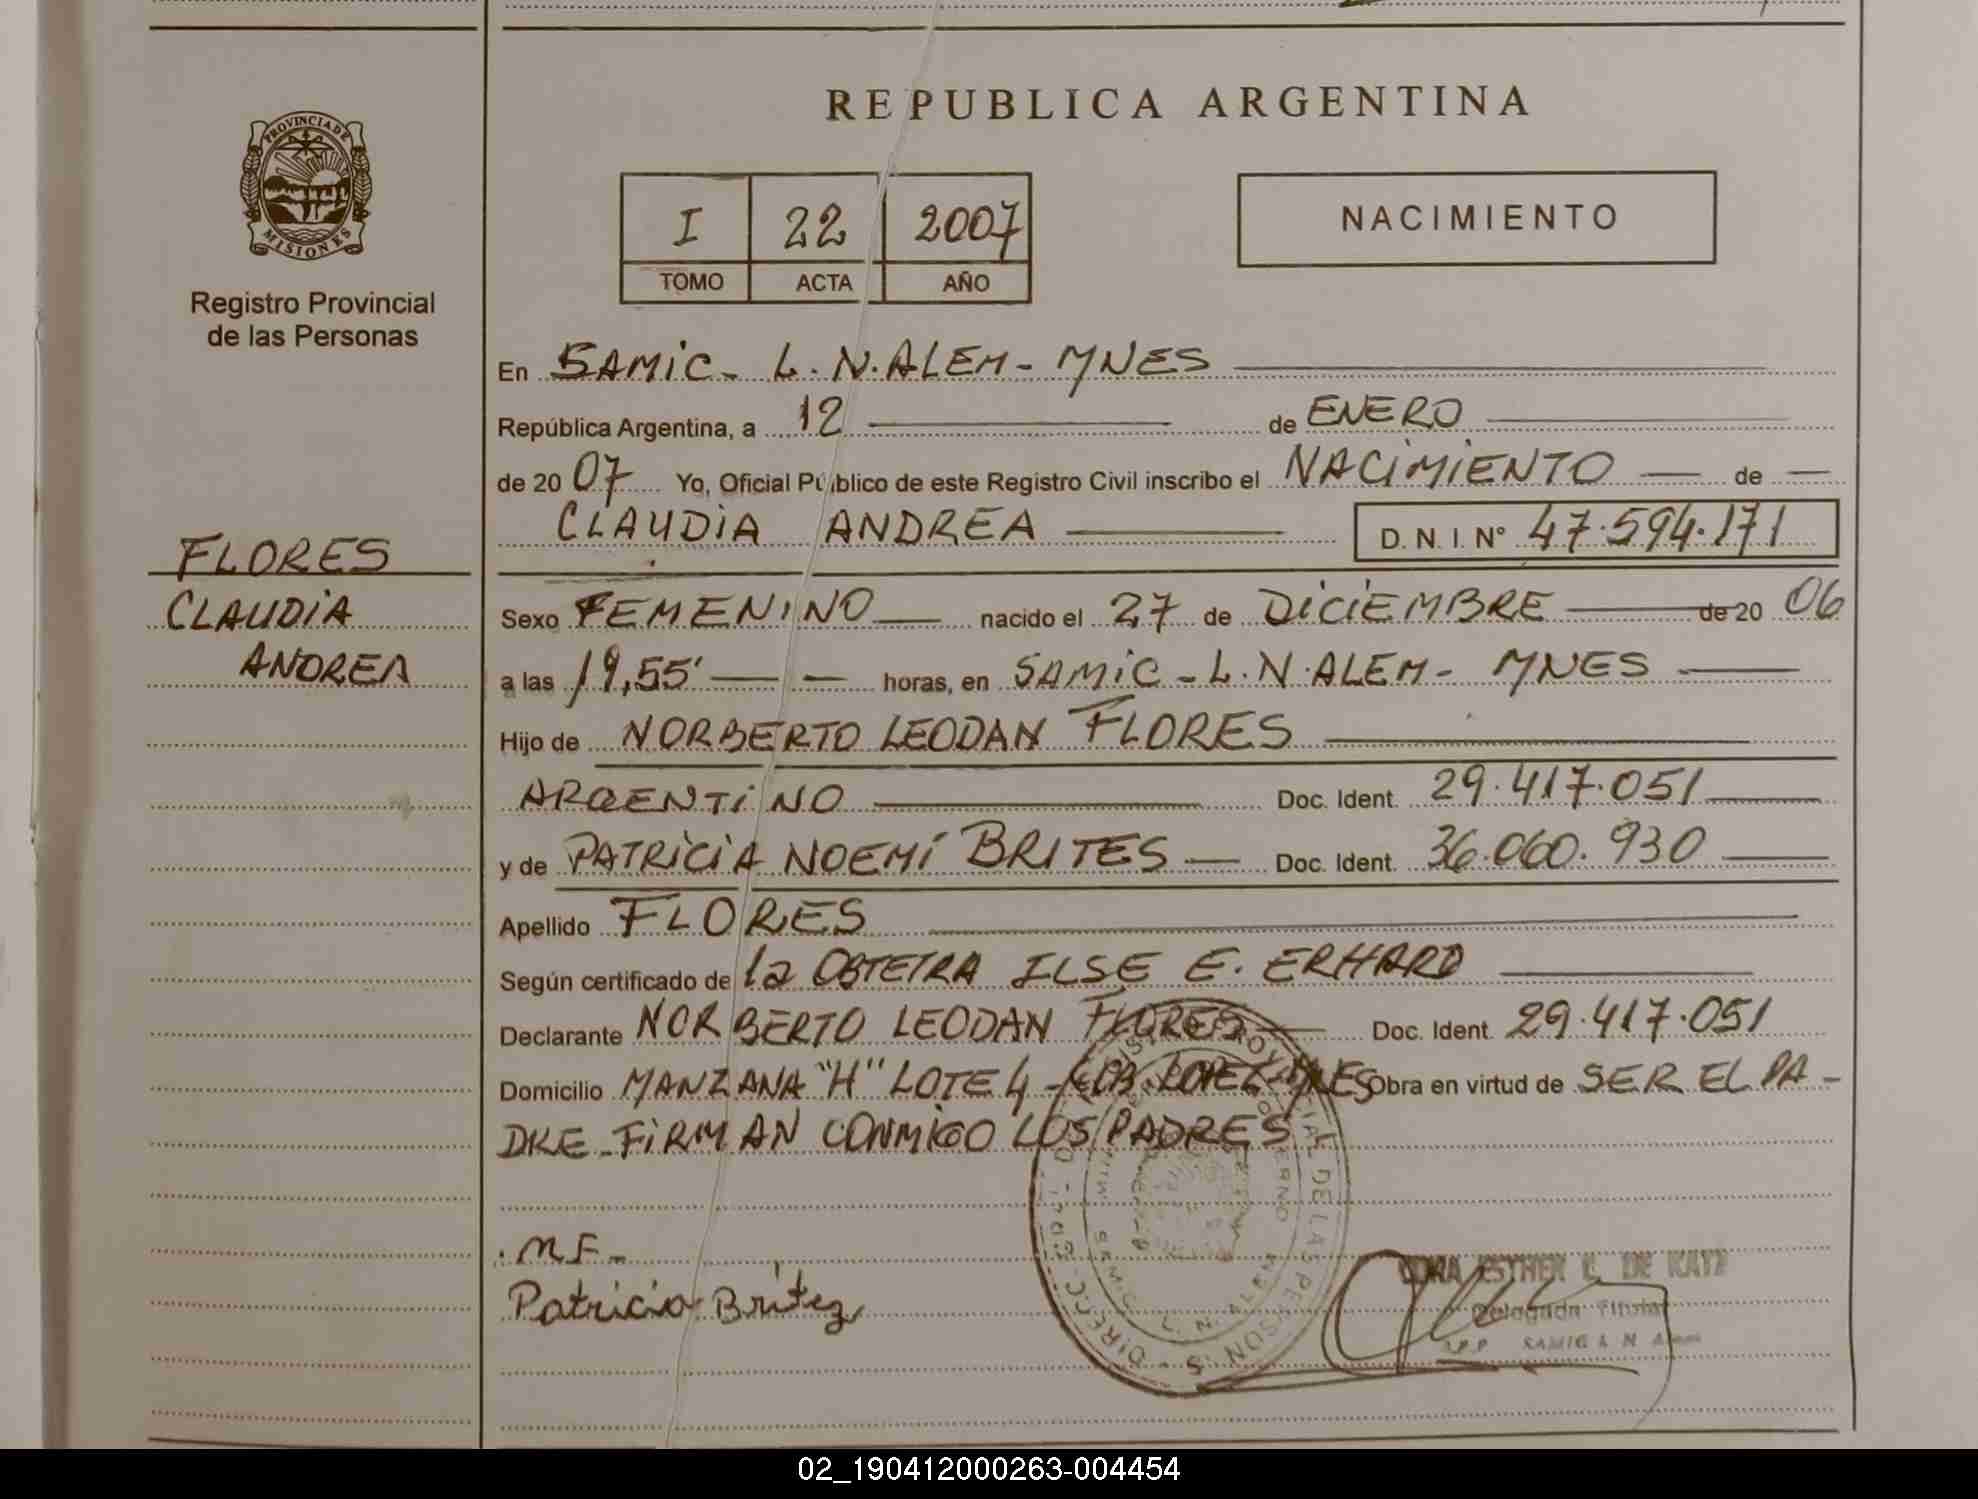 REPUBLICA ARGENTINA
PROVINCIA DE
MISIONES
Registro Provincial
de las Personas
I 22 2007
TOMO ACTA AÑO
NACIMIENTO
En SAMIC - L.N. ALEM - MNES
República Argentina, a 12 de ENERO
de 20 07 Yo, Oficial Público de este Registro Civil inscribo el NACIMIENTO de
CLAUDIA ANDREA D. N. I. N° 47.594.171
FLORES
CLAUDIA
ANDREA
Sexo FEMENINO nacido el 27 de DICIEMBRE de 20 06
a las 19,55' horas, en SAMIC - L.N. ALEM - MNES
Hijo de NORBERTO LEODAN FLORES
ARGENTINO Doc. Ident. 29.417.051
y de PATRICIA NOEMÍ BRITES Doc. Ident. 36.060.930
Apellido FLORES
Según certificado de la OBTETRA ILSE E. ERHARD
Declarante NORBERTO LEODAN FLORES Doc. Ident. 29.417.051
Domicilio MANZANA "H" LOTE 4 - LOPEZ - MNES Obra en virtud de SER EL PA-
DRE - FIRMAN CONMIGO LOS PADRES
N.F.
Patricia Britez
ESTHER DE
Delegada Titular
SAMIC L N Alem
02_190412000263-004454